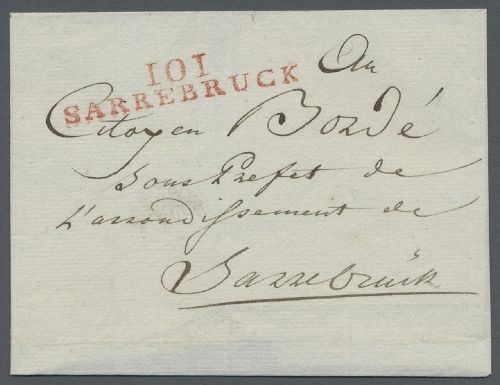 101
SARREBRUCK
Au
Citoyen Bordé
Sous Prefet de
L'arrondissement de
Sarrebrück